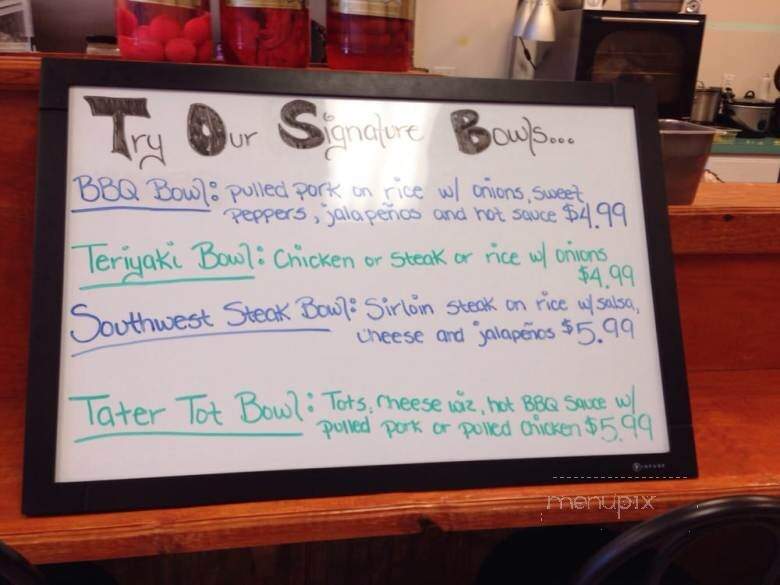 Try Our Signature Bowls...
BBQ Bowl: pulled pork on rice w/ onions, sweet
peppers, jalapeños and hot sauce $4.99
Teriyaki Bowl: Chicken or Steak or rice w/ onions
$4.99
Southwest Steak Bowl: Sirloin steak on rice w/ salsa,
cheese and jalapeños $5.99
Tater Tot Bowl: Tots, cheese wiz, hot BBQ Sauce w/
pulled pork or pulled chicken $5.99
menupix